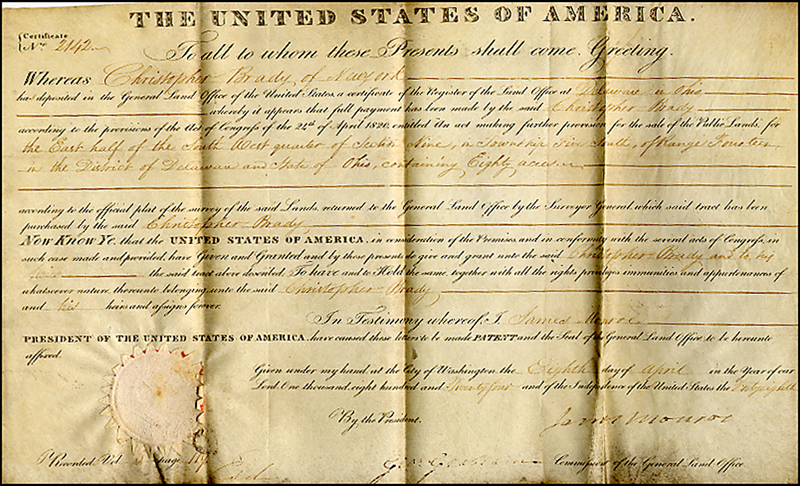 THE UNITED STATES OF AMERICA.
Certificate
No. 2142
To all to whom these Presents shall come, Greeting.
Whereas Christopher Brady, of
has deposited in the General Land Office of the United States, a certificate of the Register of the Land Office at Delaware in Ohio
whereby it appears that full payment has been made by the said Christopher Brady
according to the provisions of the Act of Congress of the 24th of April 1820, entitled An act making further provision for the sale of the Public Lands, for
the East half of the South West quarter of Section Nine, in Township South, of Range Fourteen
in the District of Delaware and State of Ohio, containing Eighty acres
according to the official plat of the survey of the said Lands, returned to the General Land Office by the Surveyor General, which said tract has been
purchased by the said Christopher Brady,
Now Know Ye, that the UNITED STATES OF AMERICA, in consideration of the Premises, and in conformity with the several acts of Congress, in
such case made and provided, have Given and Granted and by these presents do give and grant unto the said Christopher Brady and to his
heirs the said tract above described, To have and to Hold the same, together with all the rights privileges immunities and appurtenances of
whatsoever nature, thereunto belonging unto the said Christopher Brady
and his heirs and assigns forever.
In Testimony whereof, I, James Monroe
PRESIDENT OF THE UNITED STATES OF AMERICA, have caused these letters to be made PATENT and the Seal of the General Land Office to be hereunto
affixed.
Given under my hand at the City of Washington, the Eighth day of April in the Year of our
Lord One thousand, eight hundred and Twenty four and of the Independence of the United States the Forty eighth
By the President.
James Monroe
Recorded, Vol. page Commissioner of the General Land Office